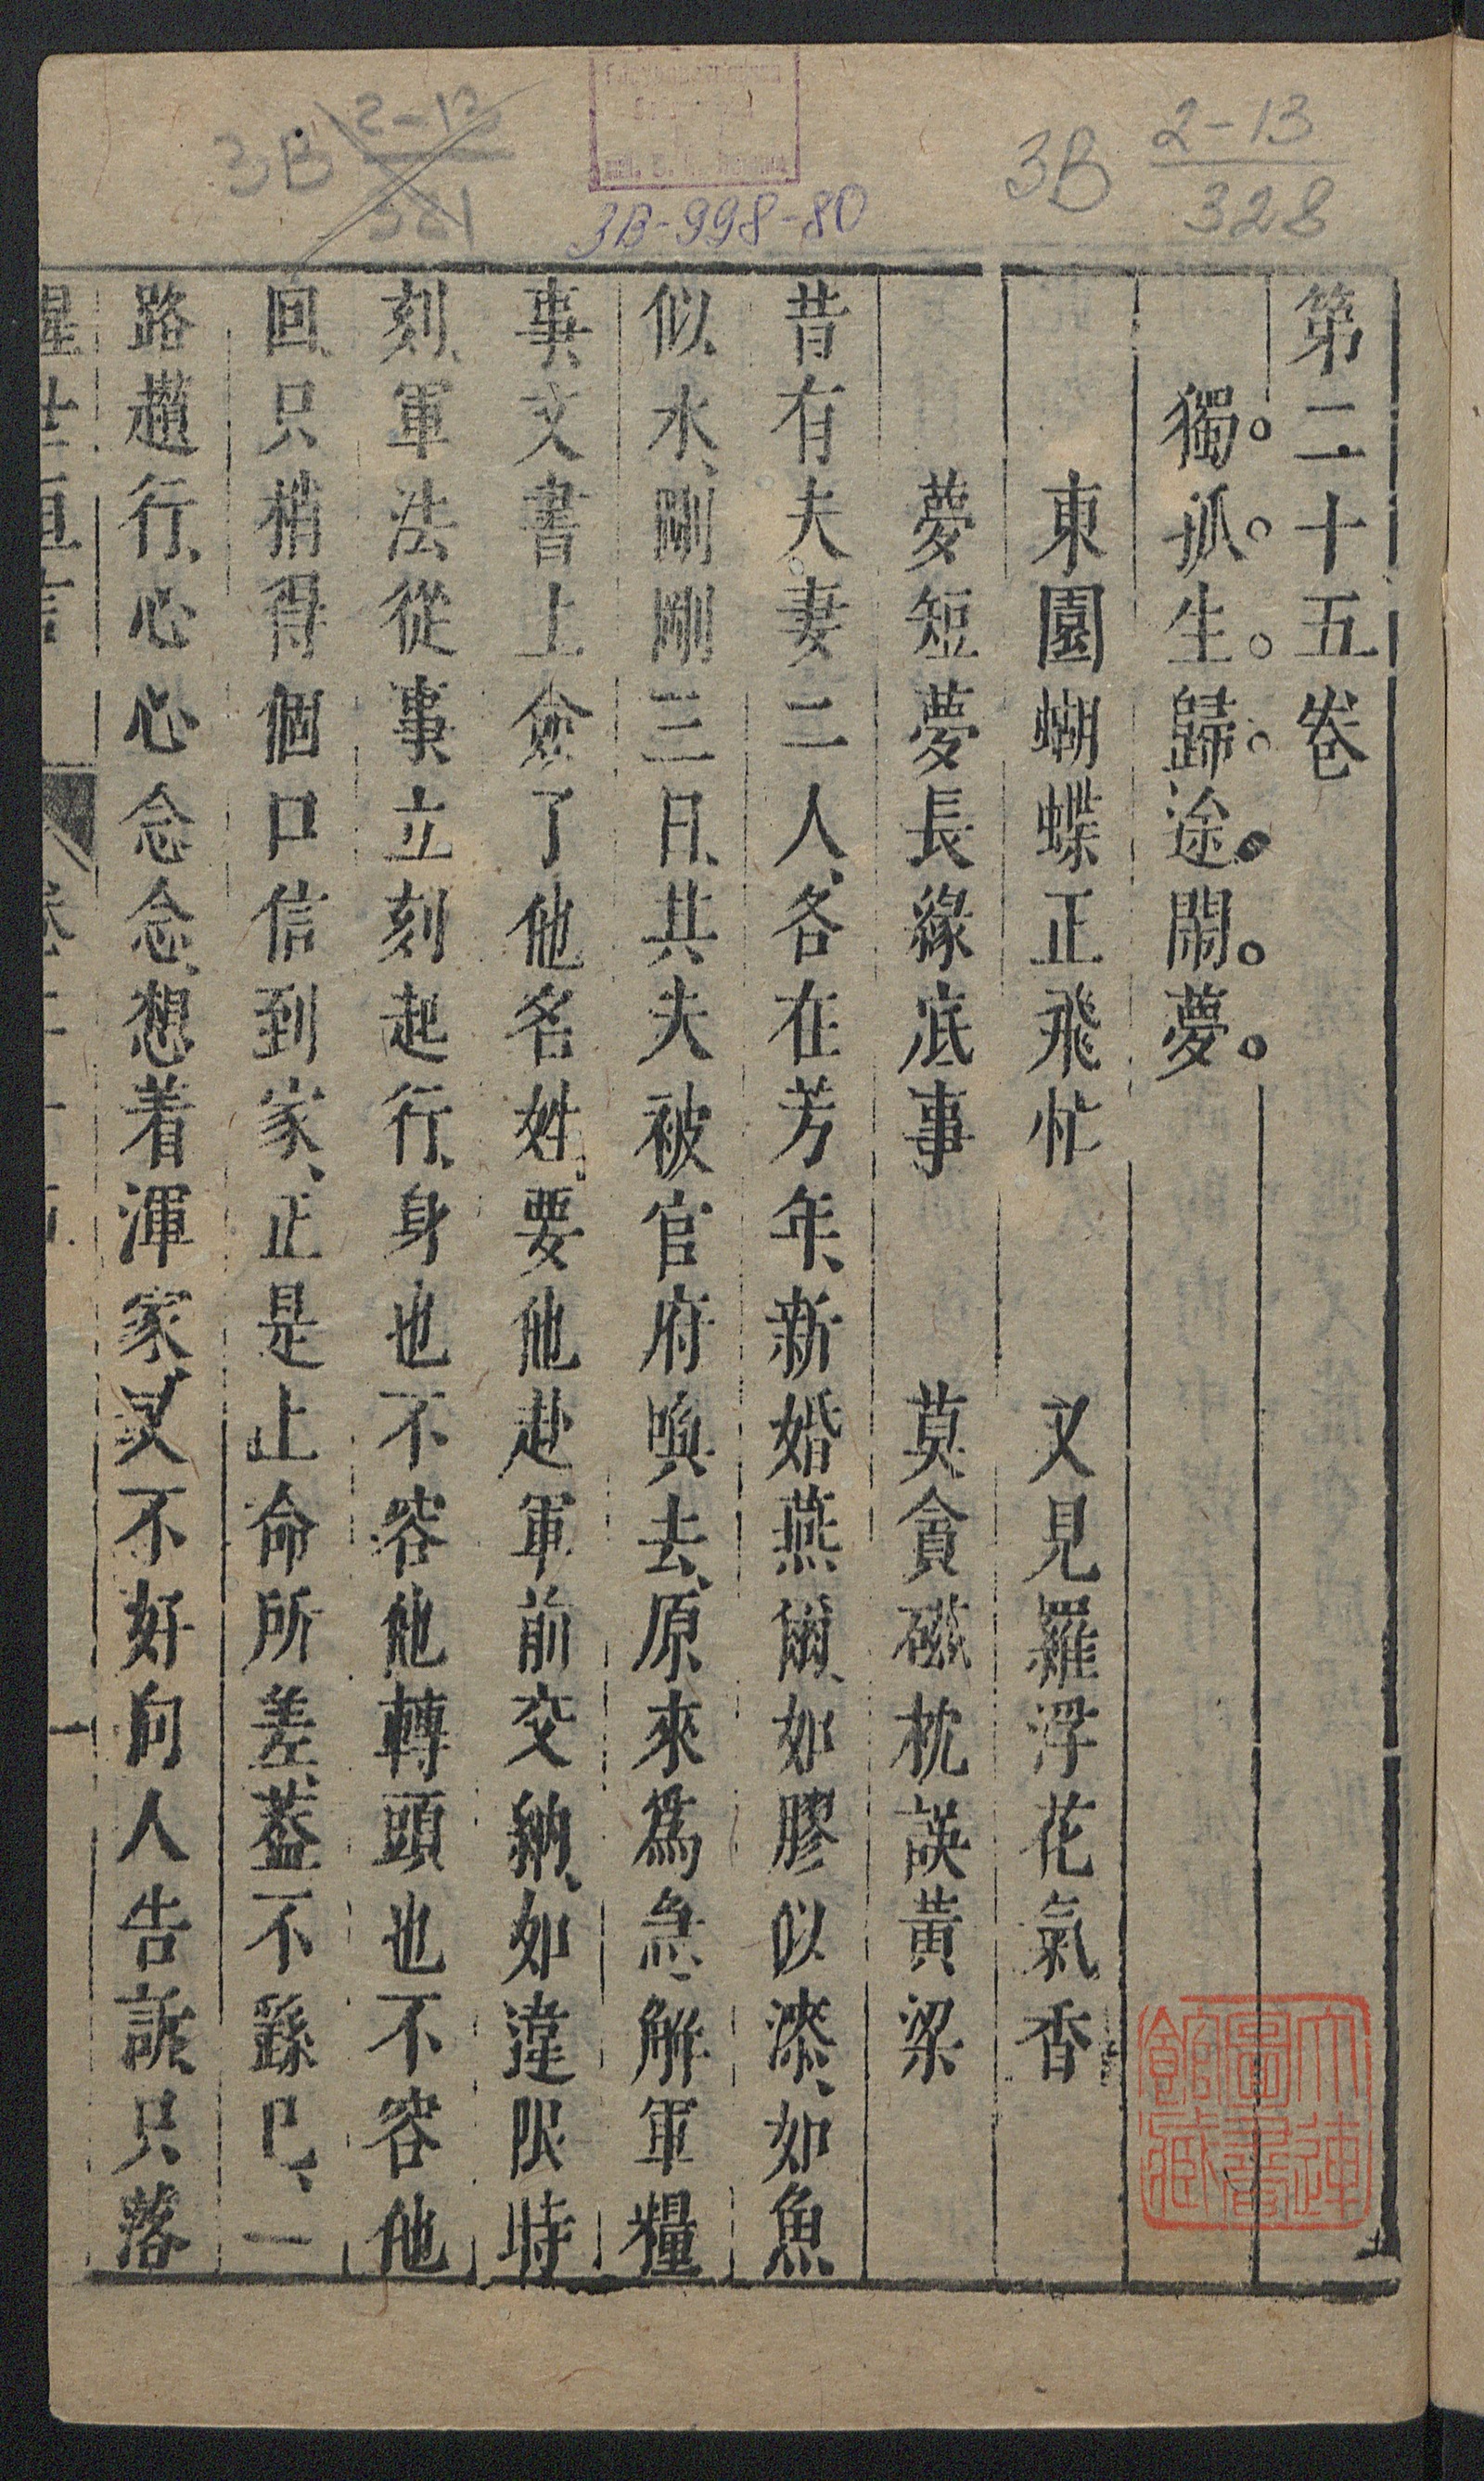 3В 2-13
328
3В-998-80
3В 2-13
第二十五卷
獨孤生歸途閙夢
東園蝴蝶正飛忙 又見羅浮花氣香
夢短夢長緣底事 莫貪磁枕誤黃粱
昔有夫妻二人、各在芳年、新婚燕爾、如膠似漆、如魚
似水、剛剛三日、其夫被官府喚去、原來爲急解軍糧
事、文書上僉了他名姓、要他赴軍前交納、如違限時
刻、軍法從事立刻起行、身也不容他轉頭也不容他
回、只稍得個口信到家、正是上命所差、葢不繇巳、一
路趲行、心心念念、想着渾家、又不好向人告訴只落
醒世恒言 卷二十五 一
大連圖書館藏